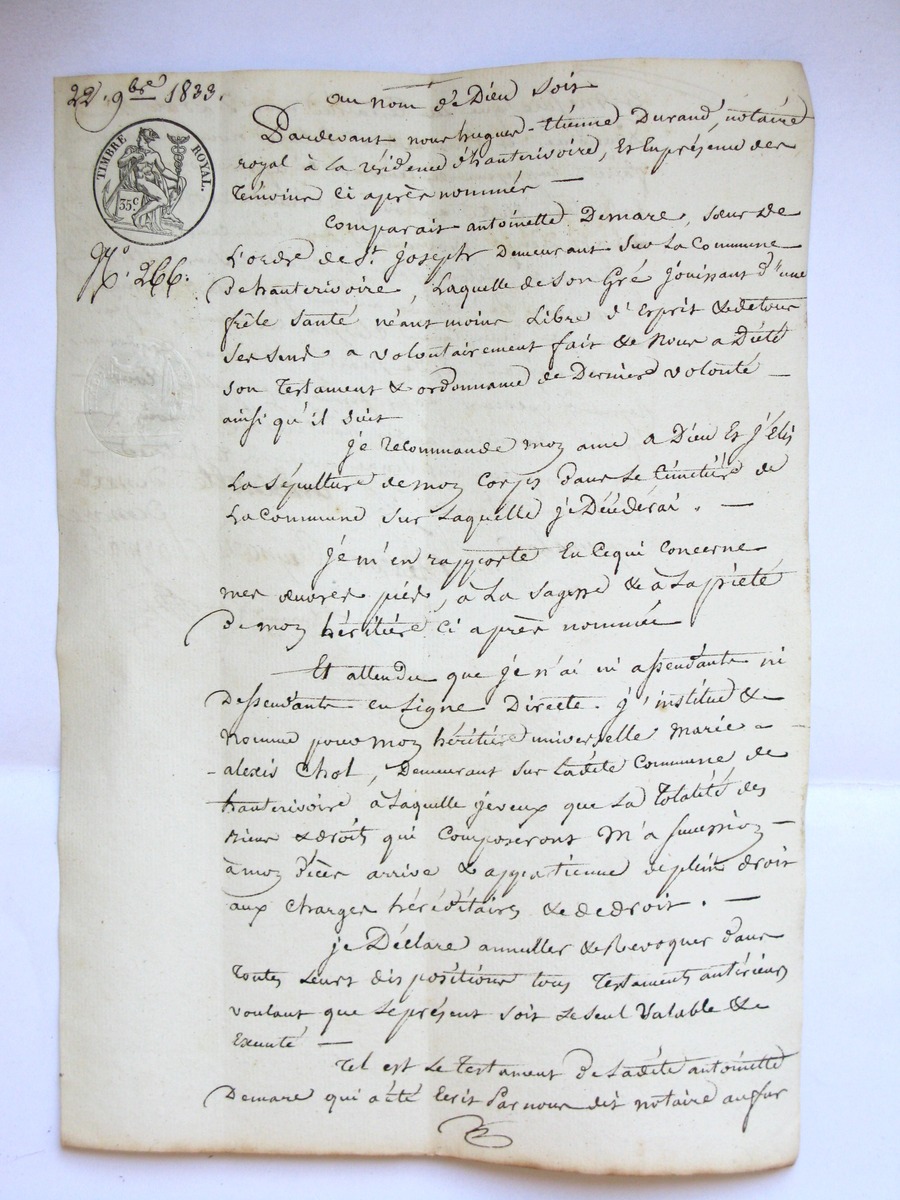 22. 9bre 1833.
TIMBRE ROYAL.
35 c
N° 266.
au nom de Dieu soit
Pardevant nous hugues-Etienne Durand, notaire
royal à la résidence d'hauterivoire, Et En présence des
témoins Ci après nommés —
Comparait antoinette Demare, sœur de
L'ordre de St. Joseph Demeurant sur La Commune
de hauterivoire, Laquelle de son Gré jouissant d'une
frêle santé néantmoins Libre d'Esprit & de tous
ses sens a volontairement fait & Nous a Dicté
son testament & ordonnance de Derniere volonté —
ainsi qu'il suit
je recommande mon ame a Dieu Et j'Elis
La sépulture de mon Corps dans Le Cimétiére de
La Commune sur Laquelle je Décéderai. —
je m'en rapporte En Ce qui Concerne
mes œuvres pies, à La sagesse & à La piété
de mon héritiére Ci après nommée
Et attendu que je n'ai ni assendants ni
dessendants en Ligne Directe. j'institue &
Nomme pour mon héritiére universelle Marie =
- alexis Chol, Demeurant sur La dite Commune de
hauterivoire à Laquelle je veux que La totalité des
Biens & droits qui Composeront M'a succession —
à mon décès arrive & appartienne de plein droit
aux Charges héréditaires & de droit. —
je Déclare annuller & Révoquer dans
toutes Leurs dispositions tous Testaments antérieurs
voulant que Le présent soit Le seul Valable &
Exécuté —
Tel est Le Testament de La dite antoinette
Demare qui a été Ecrit Par nous dit notaire au fur